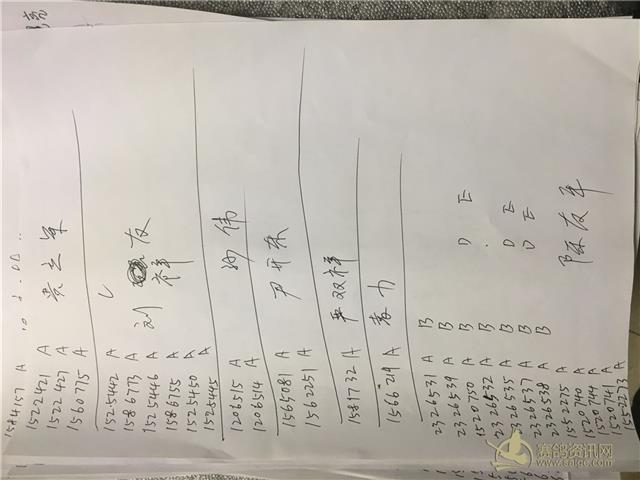 1584157 A
1522421 A
1522427 A 黄立军
1560775 A
1525442 A
1586773 A 刘友祥
1525446 A
1586755 A
1525450 A
1525405 A
1206515 A 孙伟
1206514 A
1565081 A 尹开东
1562251 A
1581732 A 双祥
1566219 A 力
2326531 A B
2326539 A B
1520750 A B D E
2326532 A B
2326535 A B D E
2326537 A B D E
2326538 A B
1552275 A
1520740 A 陈友军
1520744 A
1520741 A
1552273 A
赛鸽资讯网
www.saige.com